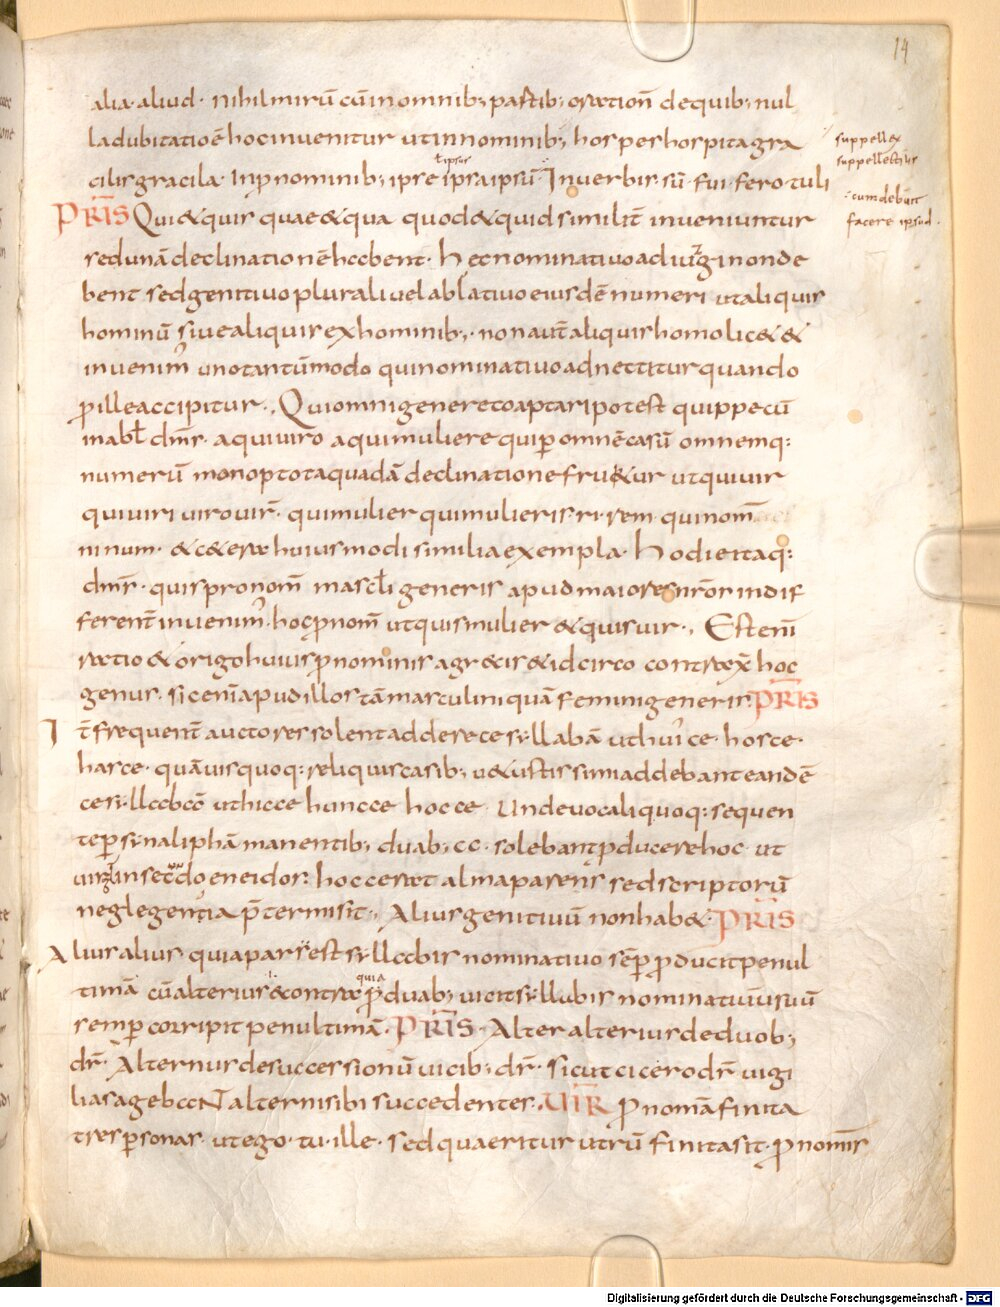 14
alia aliud · Nihil mirū cū in omnib; partib; oration̄ de quib; nul
la dubitatio ē hoc invenitur ut in nominib; hospes hospita gra
suppellex
suppellectilis
ł ipsus
cilis gracila · In p̄nominib; ipse ipsa ipsū · In verbis sū · fui · fero · tuli
· cum deb&
facere ipsud ·
PRIS Qui & quis quae & qua quod & quid similit̄ inveniuntur
sed unā declinationē habent · Hec nominativo adiungi non de
bent sed genitivo plurali vel ablativo eiusdē numeri ut aliquis
hominū sive aliquis ex hominib; · non aut̄ aliquis homo lic& &
invenim̄ uno tantūmodo qui nominativo adnectitur quando
p̄ ille accipitur ·, Qui omni genere coaptari potest quippe cū
in abł dm̄r · a qui viro a qui muliere qui p̄ omnē casū omnemq:
numerū monoptota quadā declinatione fruitur ut qui vir
qui viri viro vir̄ · qui mulier qui mulieris · ri · rem · qui nom̄
ninum · & c&era huiusmodi similia exempla · Hodie itaq:
dm̄r · quis pronom̄ masc̄li generis apud maiores nr̄or indif
ferent̄ invenim̄ · hoc p̄nom̄ ut quis mulier & quis vir ·, Est enī
ratio & origo huius p̄nominis agr&is & idcirco contrax̄ hoc
genus · sic enī apud illos tā masculini quā feminini generis PRIS
It̄ frequent̄ auctores solent addere ce syllabā ut hui ce · hosce ·
hasce · quāvis quoq: reliquis casib; v&ustissimi addebant eandē
ce syllabā ut hicce huncce hocce · Unde vocali quoq: sequen
te p̄ synaliphā manentib; duab; cc · solebant p̄ducere hoc · ut
virgł in sec̄do eneidos: hocc erat alma parens sed scriptorū
neglegentia p̄termisit ·, Alius genitivū non hab& · PRIS
Alius alius quia par est syllabis nominativo sēp p̄ducit penul
quia
timā cū alterius & contra p̄ duab; vicit syllabis nominativū suū
semper corripit penultimā · PRIS · Alter alterius de duob;
dr̄ · Alternus de successionū vicib; dr̄ · sicut cicero dr̄ vigi
lias agebaNT alternis sibi succedentes · UIR P̄nom̄a finita
tres p̄sonas · ut ego · tu · ille · sed quaeritur utrū finita sit · p̄nom̄is
Digitalisierung gefördert durch die Deutsche Forschungsgemeinschaft - DFG